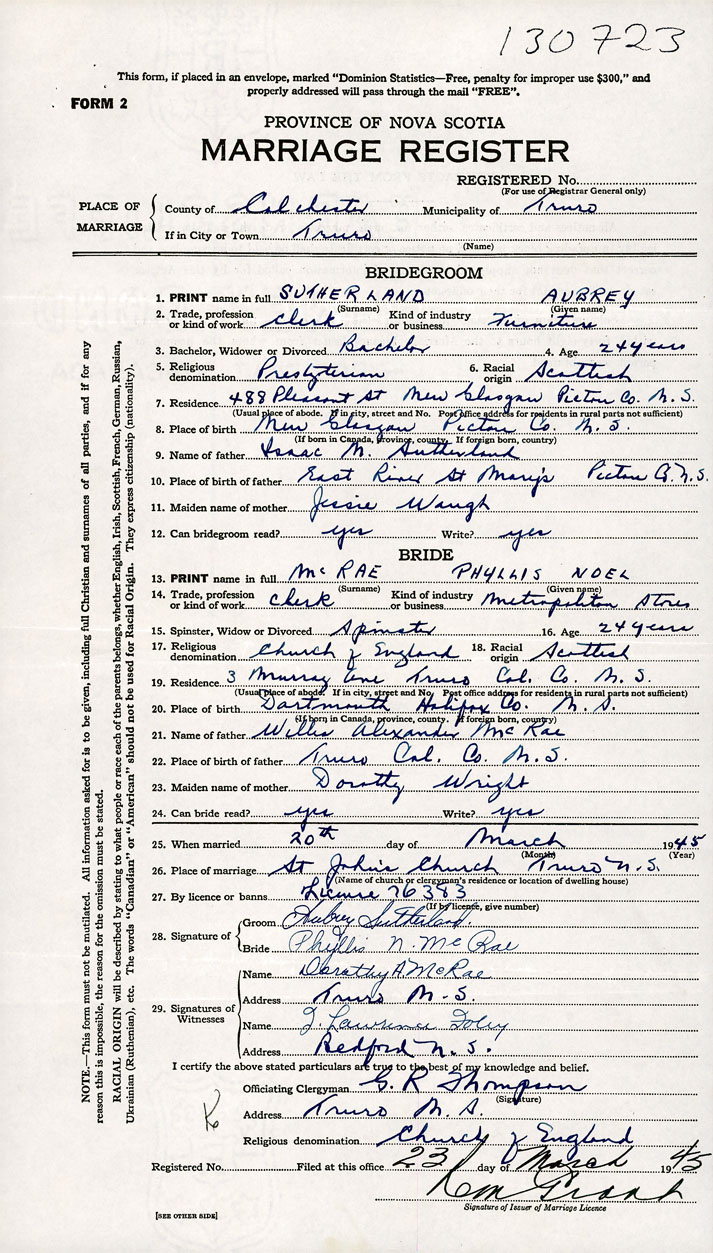 130723
This form, if placed in an envelope, marked "Dominion Statistics—Free, penalty for improper use $300," and
properly addressed will pass through the mail "FREE".
FORM 2
PROVINCE OF NOVA SCOTIA
MARRIAGE REGISTER
REGISTERED No.
(For use of Registrar General only)
PLACE OF MARRIAGE
County of Colchester Municipality of Truro
If in City or Town Truro
(Name)
BRIDEGROOM
1. PRINT name in full SUTHERLAND AUBREY
(Surname) (Given name)
2. Trade, profession or kind of work Clerk Kind of industry or business Furniture
3. Bachelor, Widower or Divorced Bachelor 4. Age 24 years
5. Religious denomination Presbyterian 6. Racial origin Scottish
7. Residence 488 Pleasant St New Glasgow Pictou Co. N.S.
(Usual place of abode. If in city, street and No. Post office address for residents in rural parts not sufficient)
8. Place of birth New Glasgow Pictou Co. N.S.
(If born in Canada, province, county. If foreign born, country)
9. Name of father Isaac M. Sutherland
10. Place of birth of father East River St Mary's Pictou Co. N.S.
11. Maiden name of mother Jessie Waugh
12. Can bridegroom read? yes Write? yes
BRIDE
13. PRINT name in full McRAE PHYLLIS NOEL
(Surname) (Given name)
14. Trade, profession or kind of work Clerk Kind of industry or business Metropolitan Stores
15. Spinster, Widow or Divorced Spinster 16. Age 24 years
17. Religious denomination Church of England 18. Racial origin Scottish
19. Residence 3 Murray Ave Truro Col. Co. N.S.
(Usual place of abode. If in city, street and No. Post office address for residents in rural parts not sufficient)
20. Place of birth Dartmouth Halifax Co. N.S.
(If born in Canada, province, county. If foreign born, country)
21. Name of father Willis Alexander McRae
22. Place of birth of father Truro Col. Co. N.S.
23. Maiden name of mother Dorothy Wright
24. Can bride read? yes Write? yes
25. When married 20th day of March 1945
(Month) (Year)
26. Place of marriage St John's Church Truro N.S.
(Name of church or clergyman's residence or location of dwelling house)
27. By licence or banns License 76383
(If by licence, give number)
28. Signature of
Groom Aubrey Sutherland.
Bride Phyllis N. McRae
29. Signatures of Witnesses
Name Dorothy A McRae
Address Truro N.S.
Name J. Lawrence Foley
Address Bedford N.S.
I certify the above stated particulars are true to the best of my knowledge and belief.
Officiating Clergyman G. R Thompson
(Signature)
Address Truro N.S.
Religious denomination Church of England
Registered No. Filed at this office 23 day of March 1945
Signature of Issuer of Marriage Licence
[SEE OTHER SIDE]
NOTE.—This form must not be mutilated. All information asked for is to be given, including full Christian and surnames of all parties, and if for any
reason this is impossible, the reason for the omission must be stated.
RACIAL ORIGIN will be described by stating to what people or race each of the parents belongs, whether English, Irish, Scottish, French, German, Russian,
Ukrainian (Ruthenian), etc. The words "Canadian" or "American" should not be used for Racial Origin. They express citizenship (nationality).